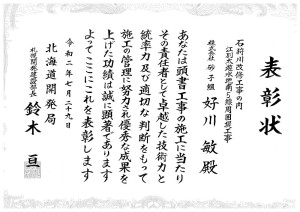 表彰状
石狩川改修工事の内
江別太遊水地南5線周囲堤工事
株式会社 砂子組
好川 敏殿
あなたは頭書工事の施工に当たり
その責任者として卓越した技術力と
統率力及び適切な判断をもって
施工の管理に努力され優秀な成果を
上げた功績は誠に顕著であります
よってここにこれを表彰します
令和二年七月二十九日
北海道開発局
札幌開発建設部長
鈴木 亘